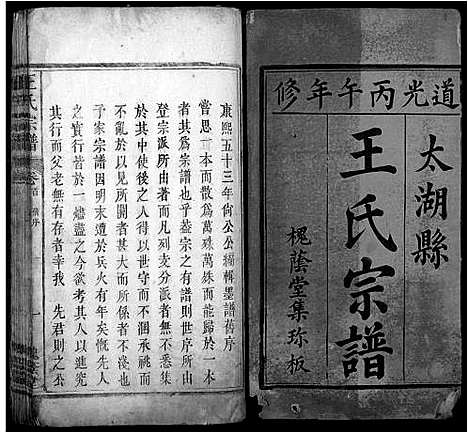 道光丙午年修
太湖縣
王氏宗譜
槐蔭堂集珍板
康熙五十三年尚公公緝墨譜舊序
嘗思一本而散爲萬殊萬殊而能歸於一本
者其爲宗譜也乎蓋宗之有譜則世序所由
登宗派所由著而凡列支分派者無不悉集
於其中使後之人得以世守而不涸承祧而
不亂而無以見所聞者甚大而所係者甚重也
予家宗譜因明末遭於兵火有年矣慨先人
之實行皆於一燼盡之今欲搜其人以進究
其行而父老無有存者幸我 先君則之公
王氏宗譜 卷首 舊序 一